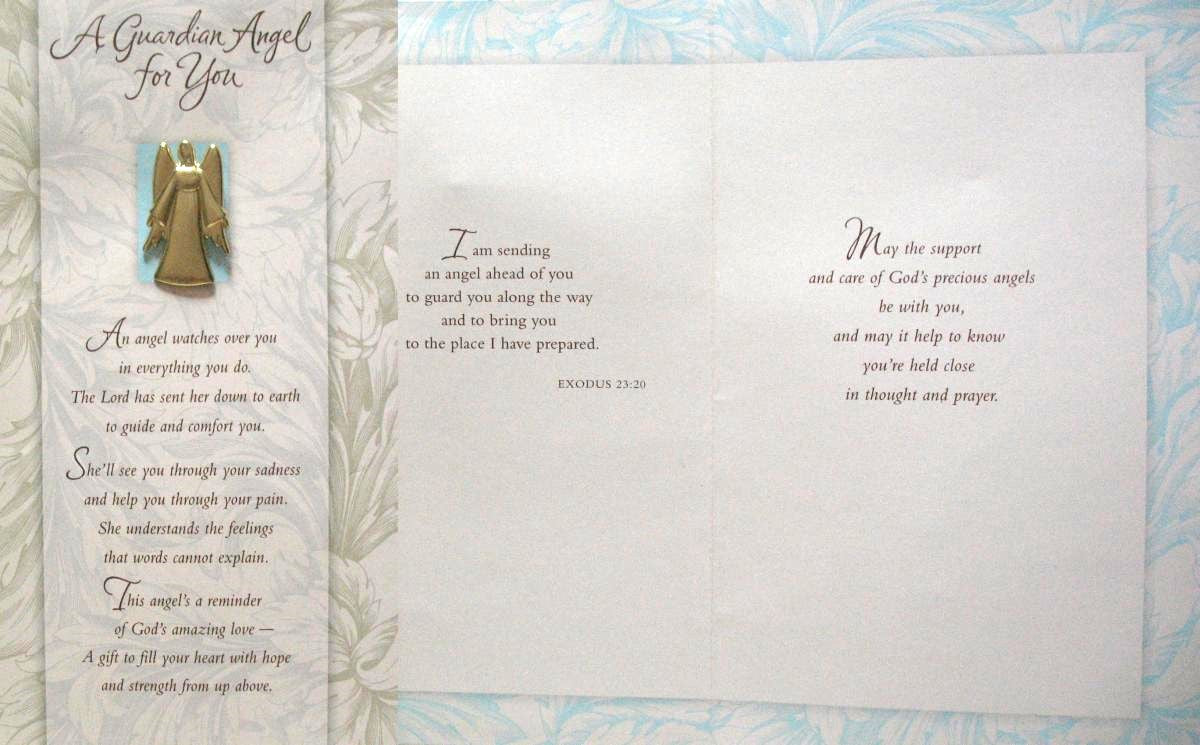 A Guardian Angel
for You
An angel watches over you
in everything you do.
The Lord has sent her down to earth
to guide and comfort you.
She'll see you through your sadness
and help you through your pain.
She understands the feelings
that words cannot explain.
This angel's a reminder
of God's amazing love —
A gift to fill your heart with hope
and strength from up above.
I am sending
an angel ahead of you
to guard you along the way
and to bring you
to the place I have prepared.
EXODUS 23:20
May the support
and care of God's precious angels
be with you,
and may it help to know
you're held close
in thought and prayer.